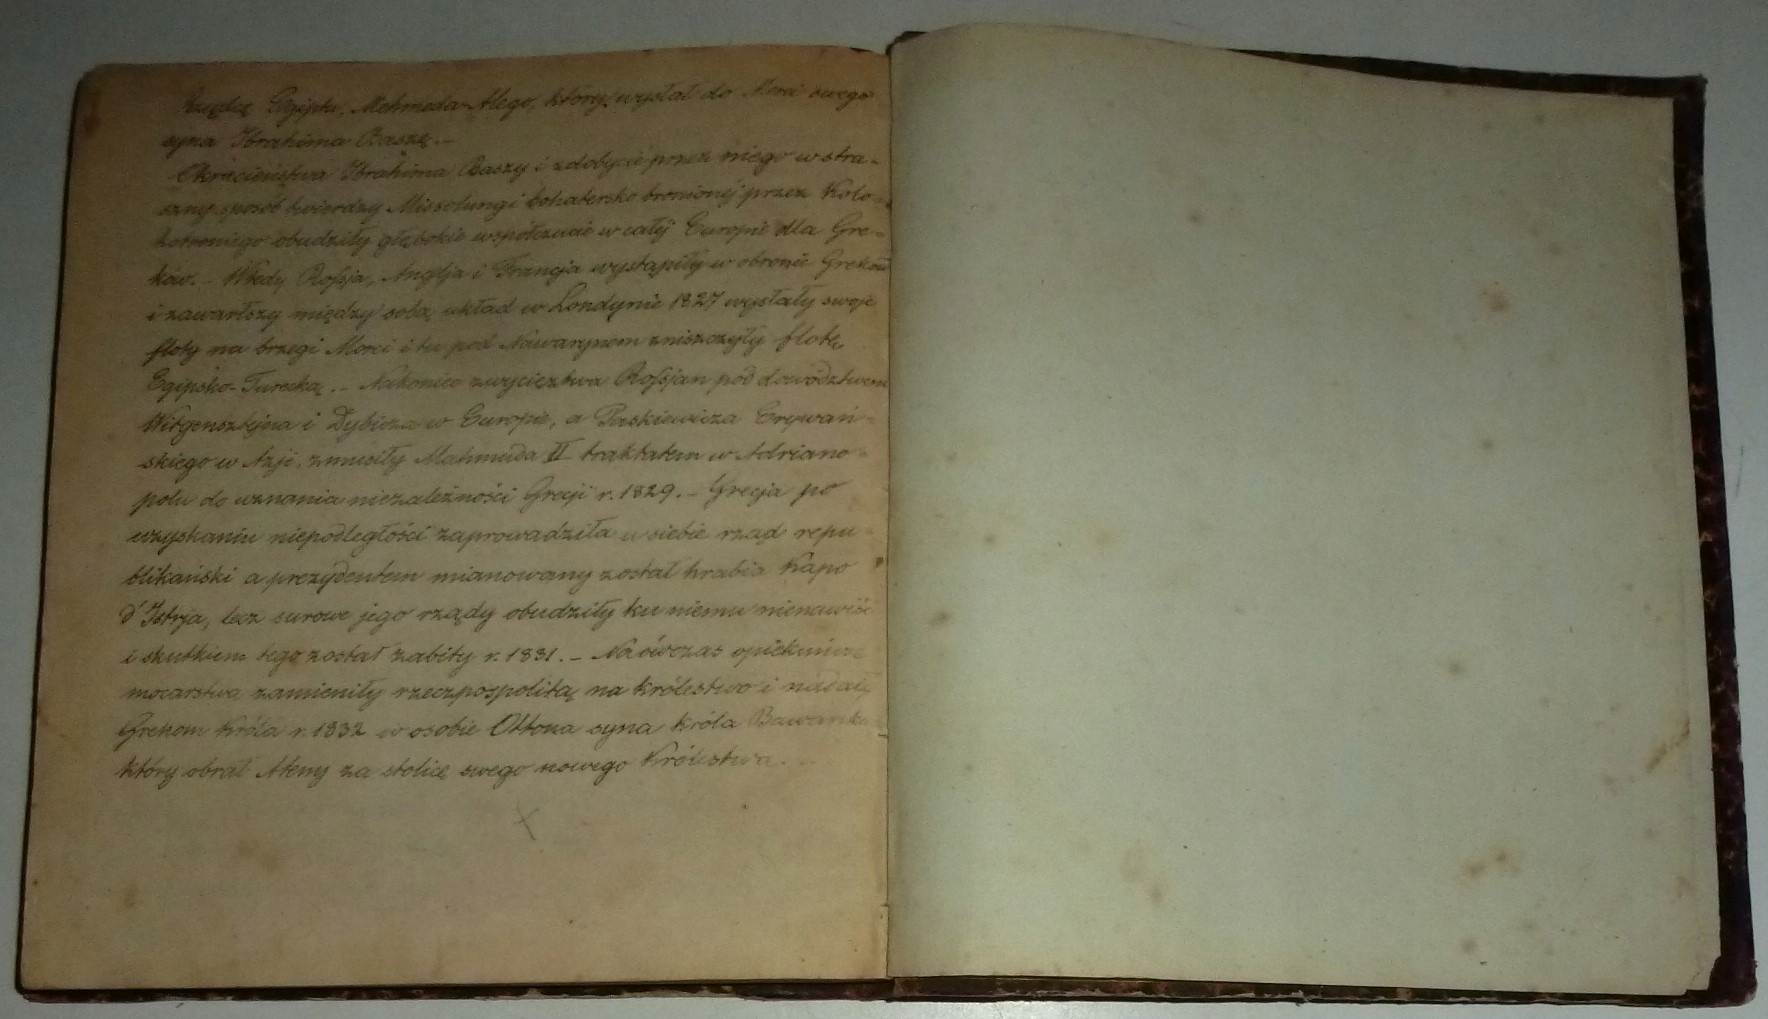 Egiptu, Mehmeda-Alego, który wysłał do Morei swego
syna Ibrahima Baszę. –
Okrucieństwa Ibrahima Baszy i zdobycie przez niego w stra-
szny sposób twierdzy Missolungi bohatersko bronionej przez Kolo-
kotroniego obudziły głębokie współczucie w całéj Europie dla Gre-
ków. – Wtedy Rossja, Anglja i Francja wystąpiły w obronie Greków
i zawarłszy między sobą układ w Londynie 1827 wysłały swoje
floty na brzegi Morei i tu pod Nawarynem zniszczyły flotę
Egipsko-Turecką. – Nakoniec zwycięztwa Rossjan pod dowództwem
Witgensztejna i Dybicza w Europie, a Paskiewicza Erywań-
skiego w Azji, zmusiły Mahmuda II traktatem w Adriano-
polu do uznania niezależności Grecji r. 1829. – Grecja po
uzyskaniu niepodległości zaprowadziła u siebie rząd repu-
blikański a prezydentem mianowany został hrabia Kapo
d'Istrja, lecz surowe jego rządy obudziły ku niemu nienawiść
i skutkiem tego został zabity r. 1831. – Naówczas opiekuńcze
mocarstwa zamieniły rzeczpospolitą na królestwo i nadały
Grekom Króla r. 1832 w osobie Ottona syna Króla
który obrał Ateny za stolicę swego nowego Królestwa. –